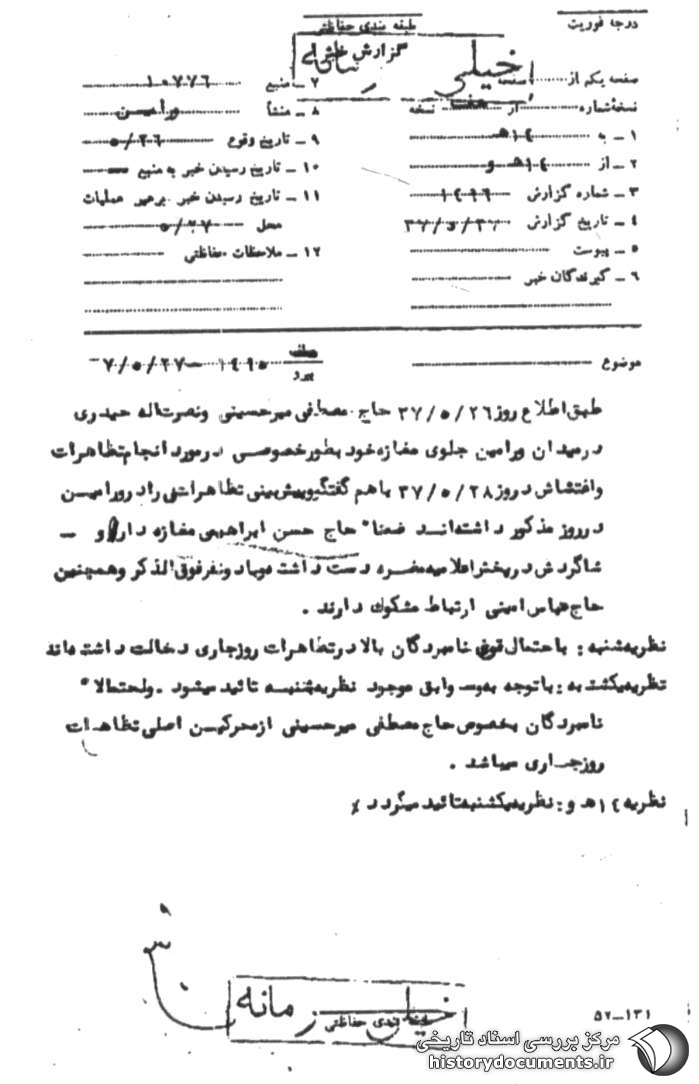 درجه فوریت
طبقه بندی حفاظتی
گزارش خبر
خیلی محرمانه
صفحه یکم از صفحه
نسخه شماره از نسخه
۱ ـ به ۳۱۴
۲ ـ از ۱۴ ه‍ و
۳ ـ شماره گزارش ۱۴۹۶
۴ ـ تاریخ گزارش
۵ ـ پیوست
۶ ـ گیرندگان خبر
۷ ـ منبع ۱۰۷۷۶
۸ ـ منشأ ورامین
۹ ـ تاریخ وقوع ۵/۲۶
۱۰ ـ تاریخ رسیدن خبر به منبع
۱۱ ـ تاریخ رسیدن خبر برهبر عملیات
محل ۵/۲۷
۱۲ ـ ملاحظات حفاظتی
موضوع
عطف
پیرو
۱۴۹۵ - ۷/۵/۲۷
طبق اطلاع روز ۳۷/۵/۲۶ حاج مصطفی میرحسینی ونصرت اله حیدری
درمیدان ورامین جلوی مغازه خود بطور خصوصی درمورد انجام تظاهرات
واغتشاش در روز ۳۷/۵/۲۸ باهم گفتگو وپیش بینی تظاهراتی را در ورامین
در روز مذکور داشته اند ضمنا" حاج حسن ابراهیمی مغازه دار و ـ
شاگردش درپخش اعلامیه مضره دست داشته وبا دونفر فوق الذکر وهمچنین
حاج عباس امینی ارتباط مشکوک دارند .
نظریه شنبه : باحتمال قوی نامبردگان بالا درتظاهرات روزجاری دخالت داشته اند
نظریه یکشنبه : باتوجه به سوابق موجود نظریه شنبه تائید میشود . ولحتمالا"
نامبردگان بخصوص حاج مصطفی میرحسینی ازمحرکین اصلی تظاهرات
روزجاری میباشد .
نظریه ۱۴ ه‍ و : نظریه یکشنبه تائید میگردد
خیلی محرمانه
طبقه بندی حفاظتی
۵۲-۱۳۱
مرکز بررسی اسناد تاریخی
historydocuments.ir